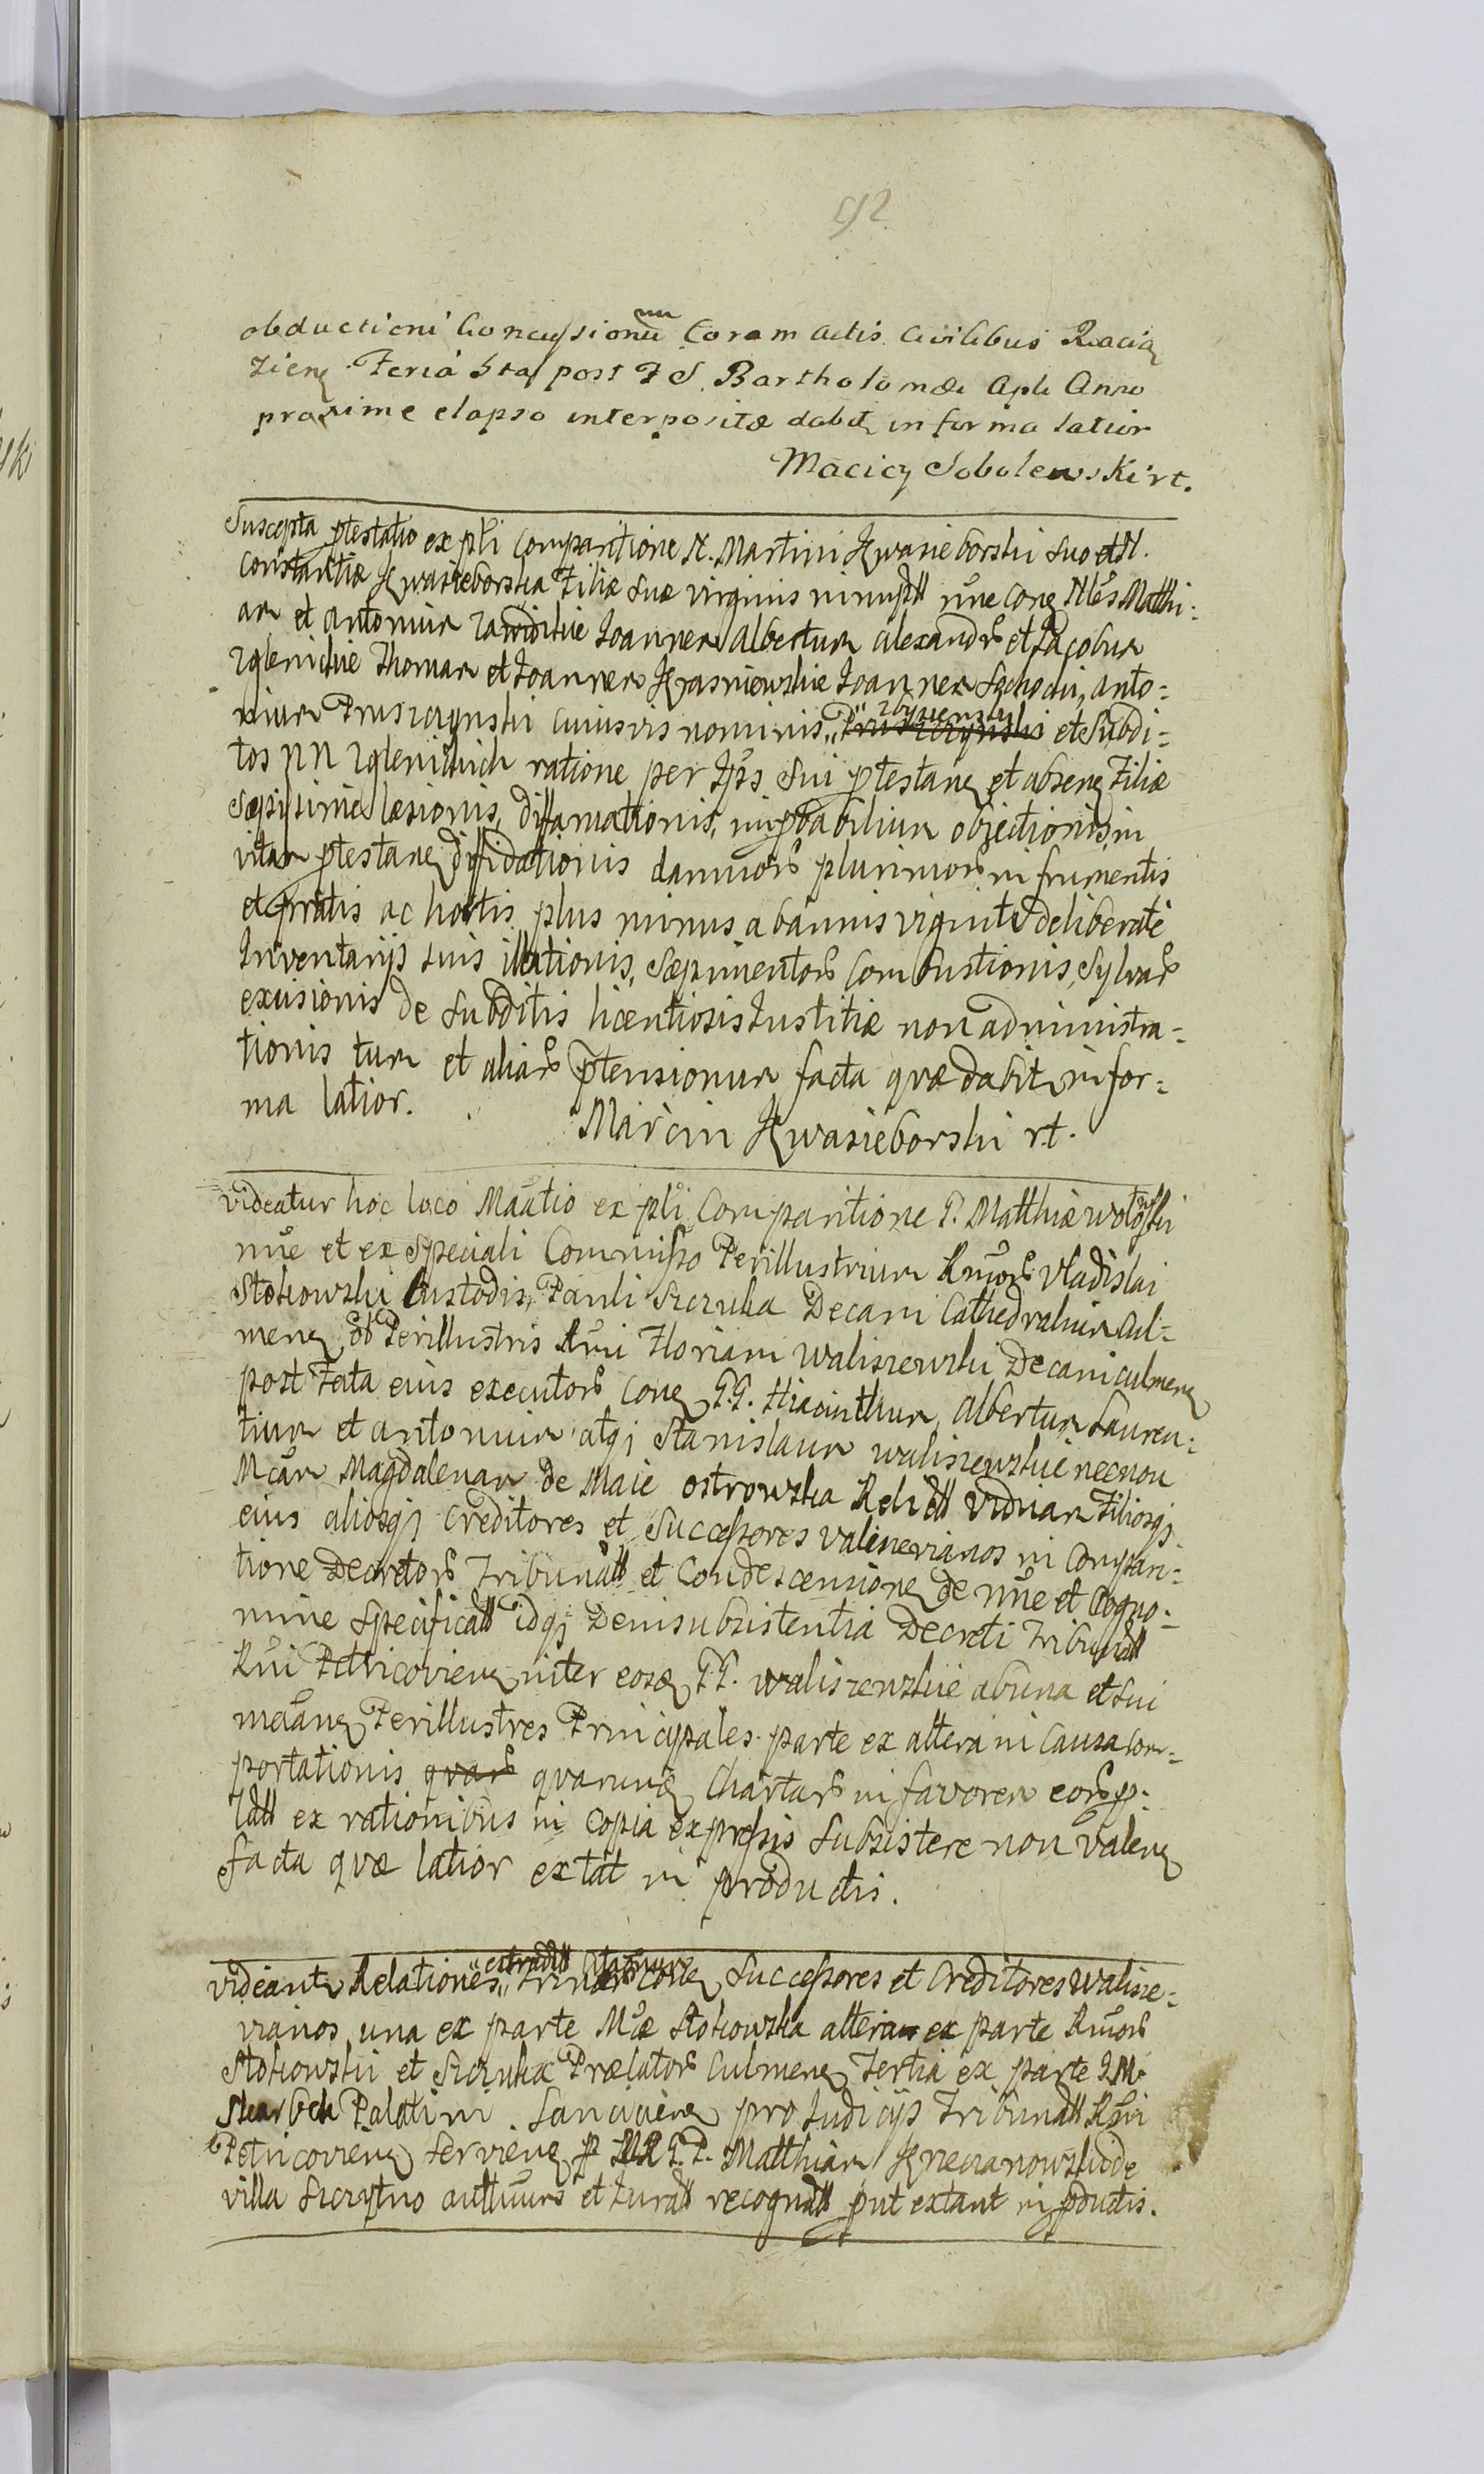 92
obductioni Concussionu nu Coram Actis Civilibus Racią
ziens Feria 5ta post F S. Bartholomæi Apli Anno
proxime elapso interpositæ dabit in forma latior
Maciey Sobolewski rt.
Suscepta ptestatio ex pli Comparitione N. Martini Kwasieborski suo et N.
Constantiæ Kwasieborska Filiæ suæ virginis nnne Con Nbs Matthi-
am et Antonium Joannem Albertum Alexandr et Jacobum
Zglenickie Thomam et Joannem Krasniewskie Joannem Sochocki, Anto=
nium Pruszczynski cuiusvis nominis et Subdi=
tos NN Zglenickich ratione per Ips Sui ptestan et absen Filiæ
sæpissime læsionis, diffamationis, improbabilium objectionis in
vitam ptestan diffidationis damnor plurimor in frumentis
et pratis ac hortis plus minus ab annis viginti deliberate
Inventarijs suis illationis, sæpimentor Combustionis, Sylvar
excisionis de Subditis licentiosis Justitiæ non administra=
tionis tum et aliar ptensionum facta quæ dabit in for=
ma latior.
Marcin Kwasieborski rt.
videatur hoc loco Manifestatio ex pli Comparitione P. Matthiæ
nne et ex Speciali Commisso Perillustrium Rmor Vladislai
Stokowski Custodis, Pauli Szczuka Decani Cathedralium Cul=
men ob Perillustris Rmi Floriani Waliszewski Decani Culmen
post Fata eius executor Con G.G. Hiacinthum, Albertum Lauren=
tium et Antonium atq Stanislaum Waliszewskie necnon
Mcam Magdalenam de Maie Ostrowska Relict Viduam Filiosq
eius aliosq Creditores et Successores Waliszevianos in Compari=
tione Decretor Tribunal et Condescensione de nne et Cogno=
mine Specificat idq De insubsistentia Decreti Tribunal
Rni Petricovien inter eosd G.G. Waliszewskie ab una et sui
Perillustres Principales parte ex altera in Causa Com=
portationis quar quarund Chartar in favorem eor p=
lat ex rationibus in Copia expressis Subsistere non valen
facta quæ latior extat in productis.
videant Relationes extradit Citationum Trinar Con Successores et Creditores Walisze=
vianos, una ex parte Mcæ Stokowska altera ex parte Rmor
Stokowski et Szczuka Prælator Culmen Tertia ex parte I M
Skarbek Palatini Lancicien pro Judicijs Tribunal Rni
Petricovien Servien p G.P. Matthiam Krzeczanowski de
villa Szczytno authun et Jurat recognit put extant in pductis.